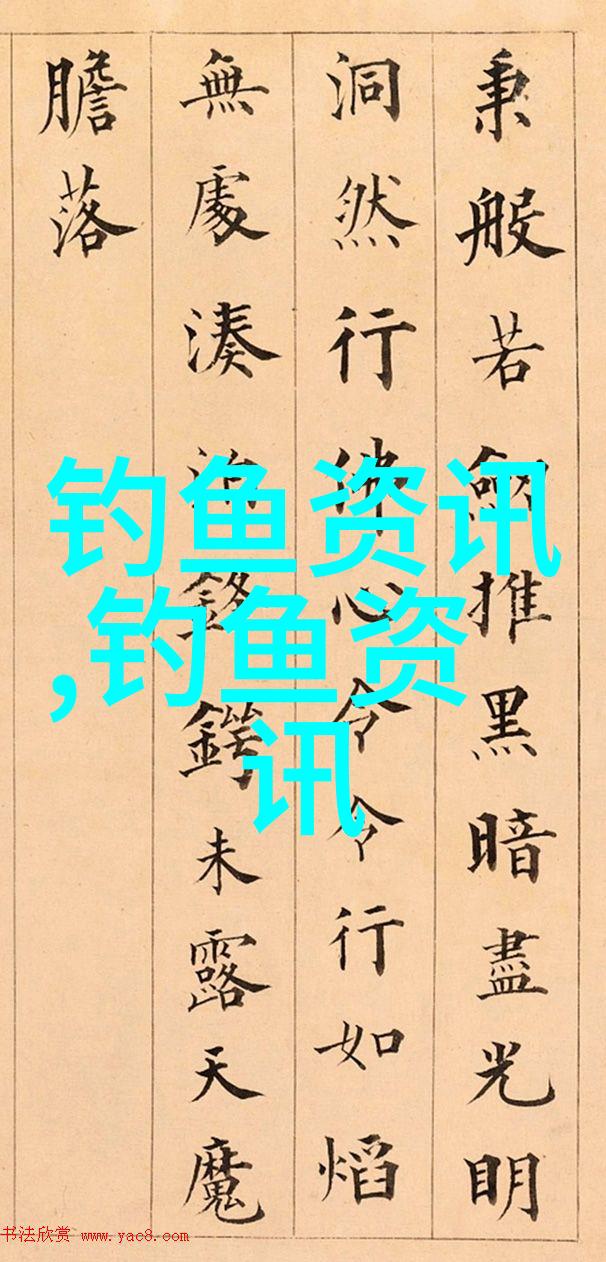 秉般若推黑暗盡光明
洞然行佛心令令行如熖
無處湊泊鋒鍔未露天魔
膽落
钓鱼资讯
,钓鱼资
讯
书法欣赏 www.yac8.com